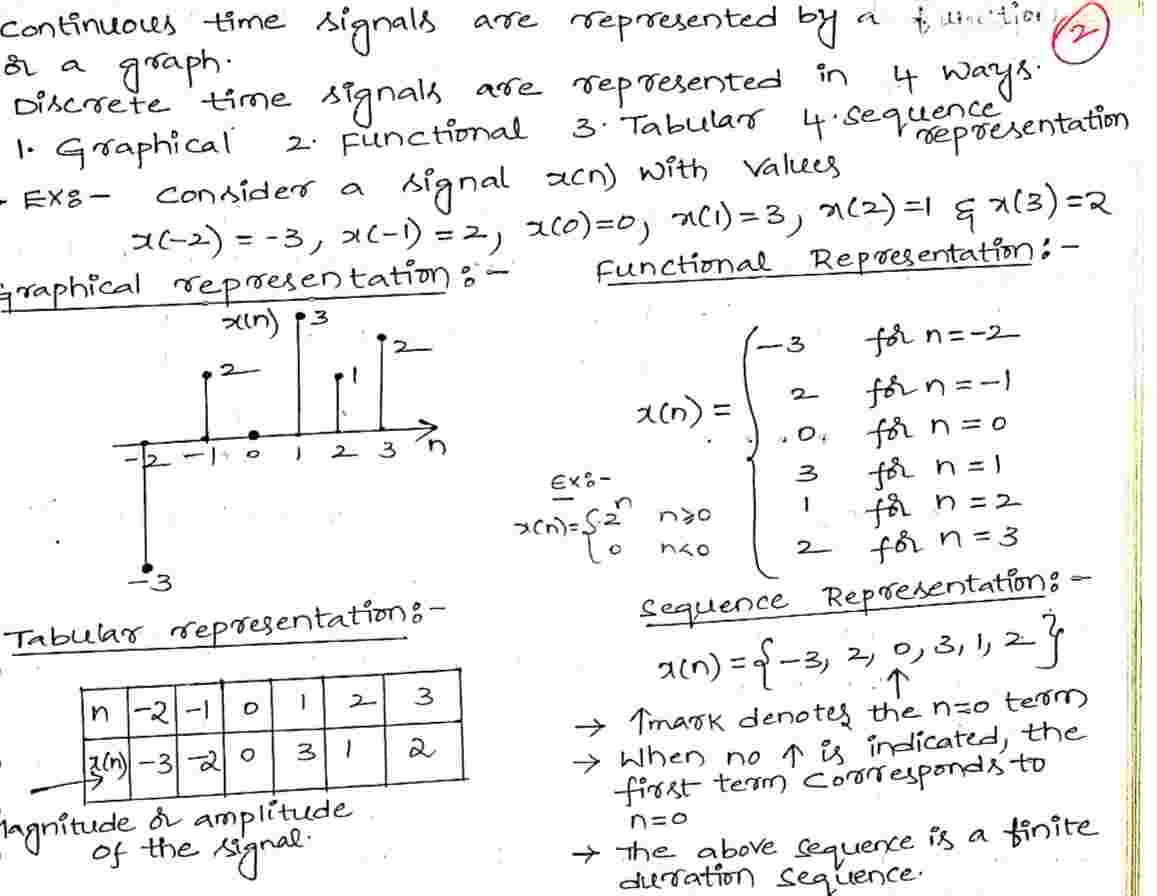 Continuous time signals are represented by a function
or a graph.
Discrete time signals are represented in 4 ways.
1. Graphical 2. Functional 3. Tabular 4. Sequence representation
Ex:- Consider a signal x(n) with values
x(-2) = -3, x(-1) = 2, x(0)=0, x(1)=3, x(2)=1 & x(3)=2
Graphical representation:-
x(n)
3
2
2
1
-2 -1 0 1 2 3 n
-3
Functional Representation:-
x(n) =
-3 for n=-2
2 for n=-1
0 for n=0
3 for n=1
1 for n=2
2 for n=3
Ex:-
x(n)={2^n n≥0
0 n<0
Tabular representation:-
n -2 -1 0 1 2 3
x(n) -3 -2 0 3 1 2
Magnitude or amplitude
of the signal.
Sequence Representation:-
x(n) = {-3, 2, 0, 3, 1, 2}
↑
→ ↑mark denotes the n=0 term
→ When no ↑ is indicated, the
first term corresponds to
n=0
→ The above sequence is a finite
duration sequence.
2